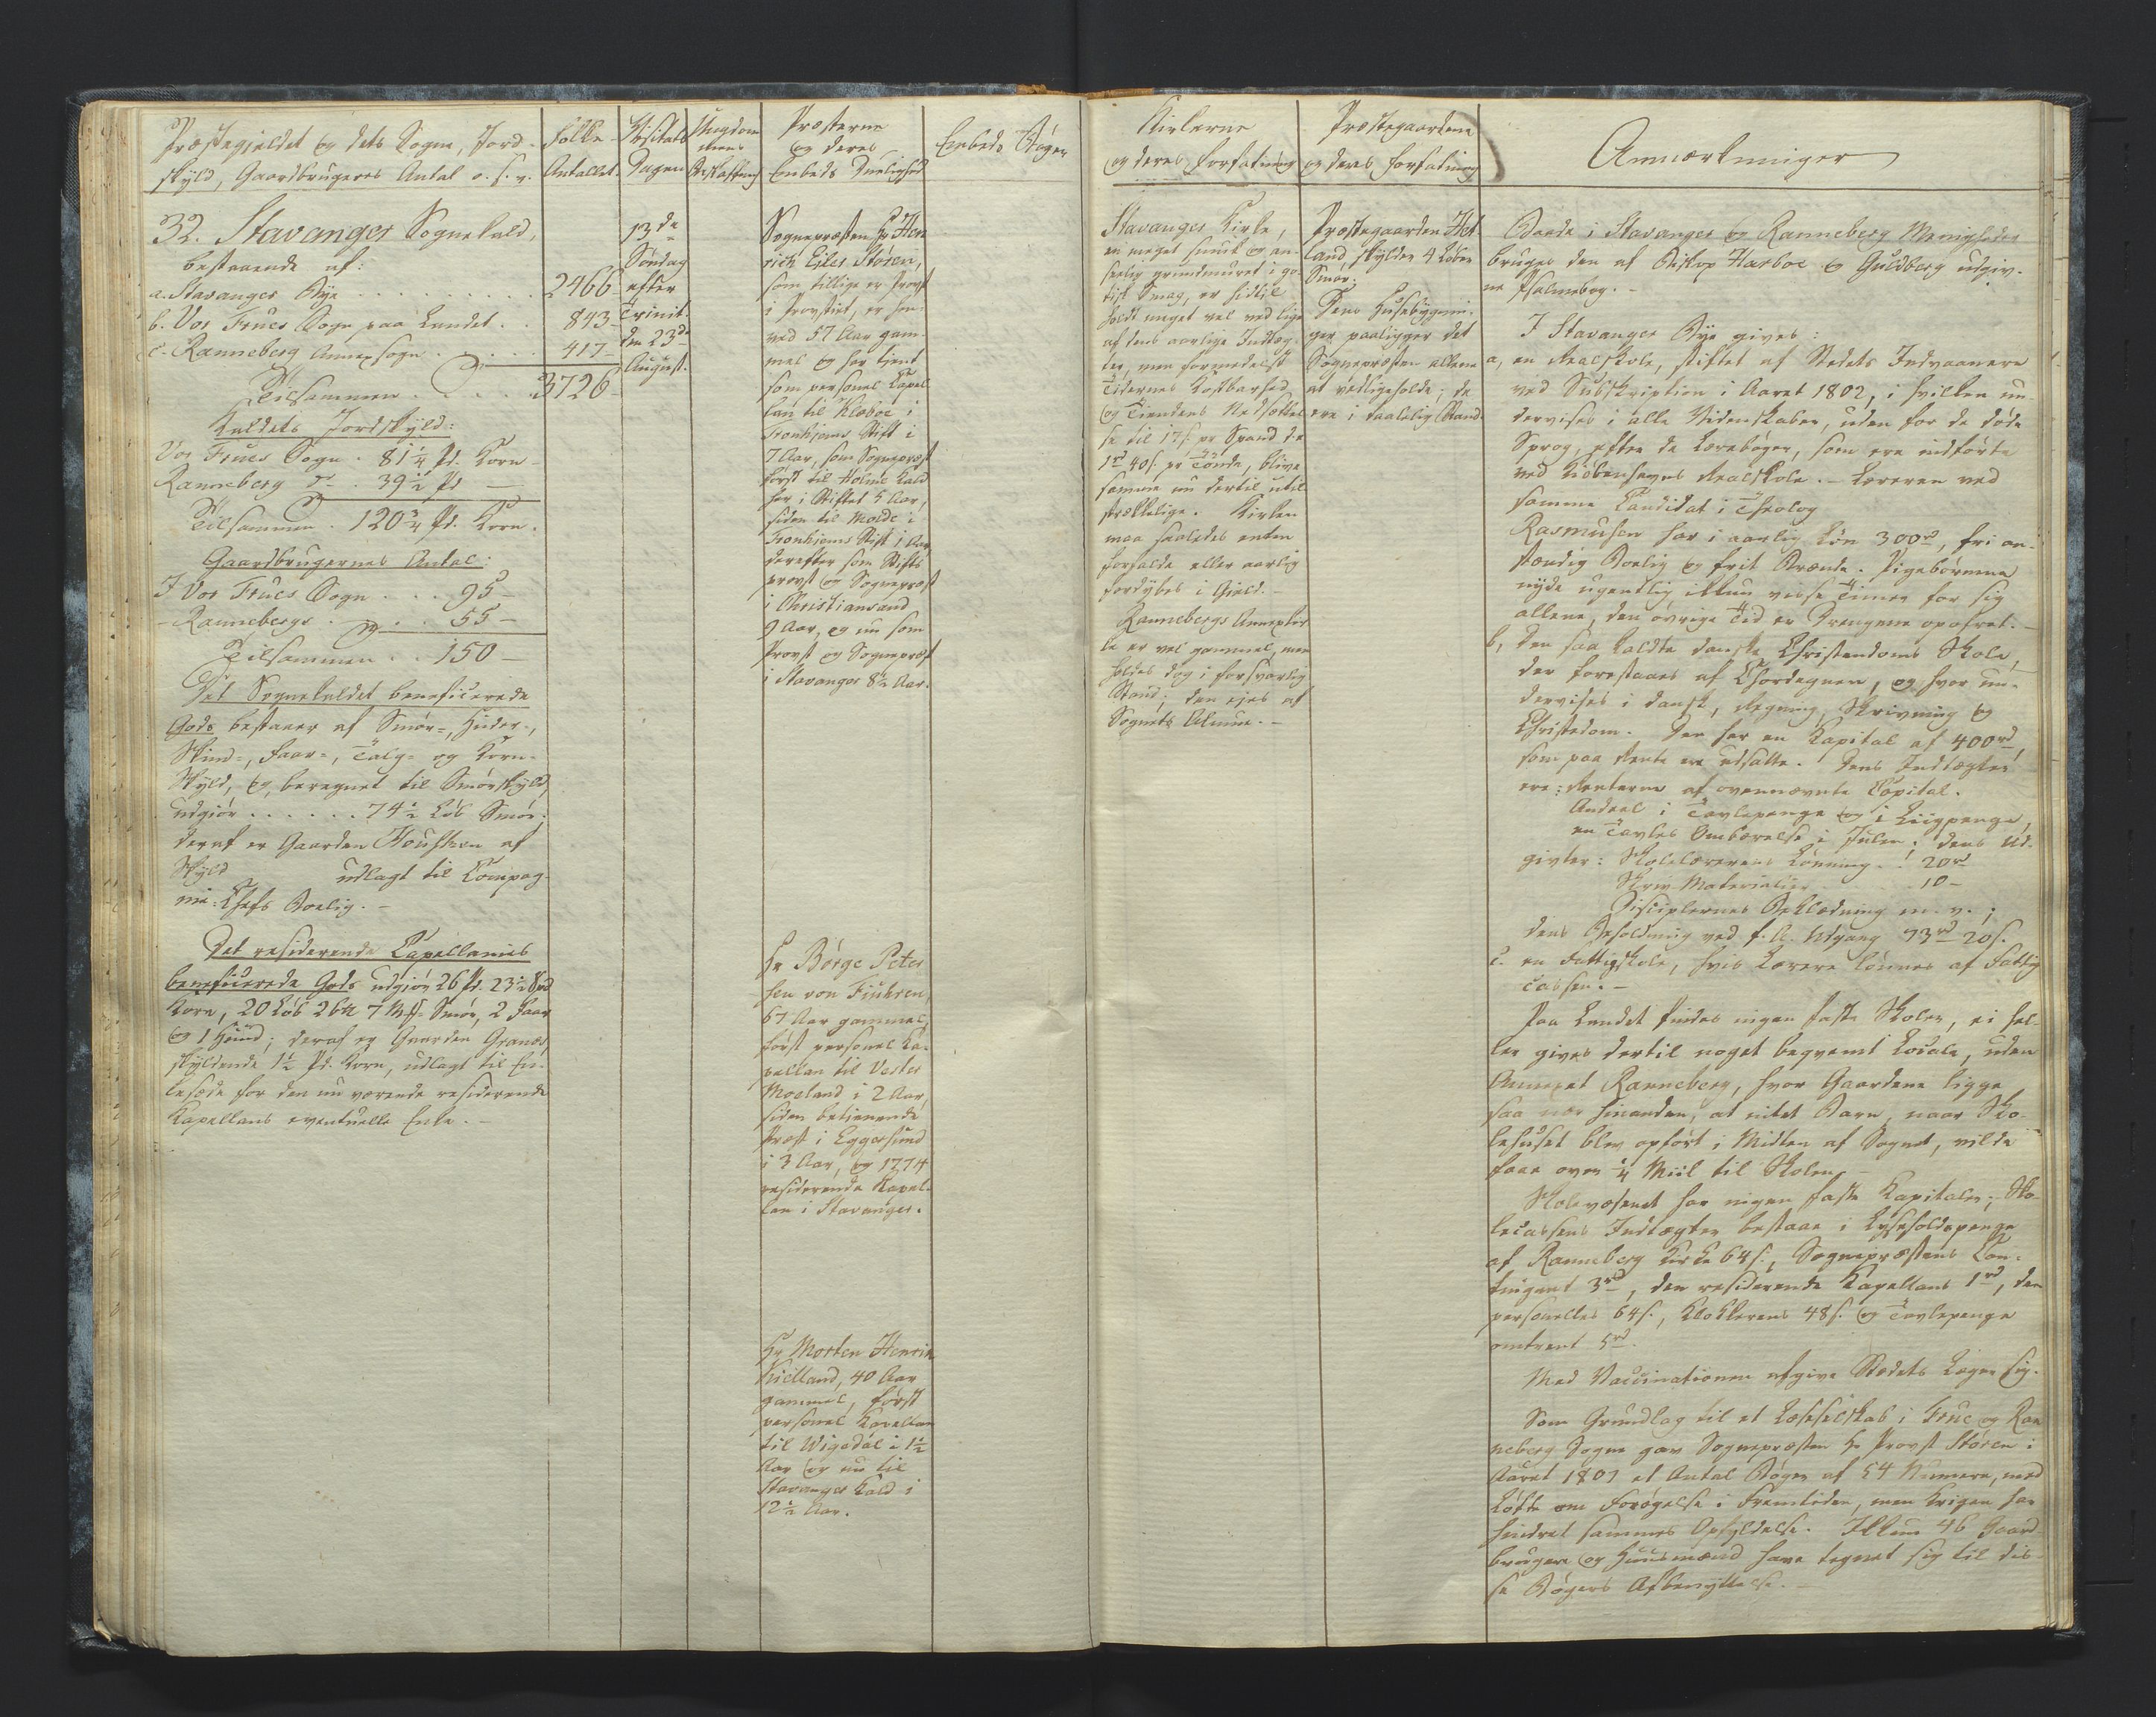 Præstegjeldet og dets Sogne, Jord-
skyld, Gaardbrugeres Antal o. s. v.
Folke-
Antallet.
Visitats
Dagen
Ungdom-
mens
Beskaffenhed
Præsterne
og deres
Embeds Duelighed
Embeds Bøger
32. Stavanger Sognekald,
bestaaende af:
a. Stavanger Bye . . . . . . . 2466
b. Vor Frues Sogn paa Landet . . 843
c. Ranneberg Annexsogn . . . . . 417
Tilsammen . . . . 3726
Kaldets Jordskyld:
Vor Frues Sogn . 81 1/4 Pd. Korn
Ranneberg do . 39 1/2 Pd —
Tilsammen . 120 3/4 Pd. Korn.
Gaardbrugernes Antal:
I Vor Frues Sogn . . . 95 —
- Rannebergs . . . . 55 —
Tilsammen . . 150 —
Det Sognekaldet beneficerede
Gods bestaaer af Smør-, Huder-,
Skind-, Faar-, Talg- og Korn-
Skyld, og, beregnet til Smørskyld,
udgiør . . . . . . 74 1/2 Løb Smør;
deraf er Gaarden af
Skyld udlagt til Compag-
nie-Chefs Bolig. —
Det residerende Capellanies
beneficerede Gods udgiør 26 Pd. 23 1/2 Spd
Korn, 20 Løb 2 7 Mk Smør, 2 Faar
og 1 Huud; deraf er Gaarden Granæs,
skyldende 1 1/2 Pd. Korn, udlagt til En-
kesæde for den nu værende residerende
Kapellans eventuelle Enke. —
13de
Søndag
efter
Trinit.
den 23de
August.
Sognepræsten Hr Hen-
rich Eiler Støren,
som tillige er Provst
i Provstiet, er hen-
ved 57 Aar gam-
mel og har tient
som personel Capel-
lan til Klæboe i
Tronhjems Stift i
7 Aar, som Sognepræst
først til Holme Kald
her i Stiftet 5 Aar,
siden til Molde i
Tronhjems Stift 1 Aar
derefter som Stifts
provst og Sognepræst
i Christiansand
9 Aar, og nu som
Provst og Sognepræst
i Stavanger 8 1/2 Aar.
Hr Børge Peter
sen von Führen,
67 Aar gammel,
først personel Ca-
pellan til Vester
Moeland i 2 Aar,
siden betienende
Præst i Eggersund
i 3 Aar, og 1774
residerende Kapel-
lan i Stavanger.
Hr Morten Henrik
Kielland, 40 Aar
gammel, først
personel Kapellan
til Wigedal i 1 1/2
Aar og nu til
Stavanger Kald i
12 1/2 Aar.
Kirkerne
og deres Forfatning
Præstegaardene
og deres Forfatning
Anmærkninger
Stavanger Kirke,
en meget smuk og an-
seelig grundmuret i go-
tisk Smag, er hidtil
holdt meget vel ved lige
af dens aarlige Indtæg-
ter, men formedelst
Tidernes Kostbarhed
og Tiendens Nedsættel-
se til 17 s. pr Spand d. e.
1rd 40 s. pr Tønde, blive
samme nu dertil util-
strækkelige. Kirken
maa saaledes enten
forfalde eller aarlig
fordybes i Gield. —
Rannebergs Annexkir-
ke er vel gammel, men
holdes dog i forsvarlig
Stand; den ejes af
Sognets Almue. —
Præstegaarden Het-
land, skylder 4 Løber
Smør.
Dens Huusebygnin-
ger paaligger det
Sognepræsten allene
at vedligeholde; de
ere i taalelig Stand.
Baade i Stavanger og Ranneberg Menigheder
bruges den af Biskop Harboe og Guldberg udgiv-
ne Psalmebog. —
I Stavanger Bye gives:
a, en Realskole, stiftet af Stedets Indvaanere
ved Subskription i Aaret 1802, i hvilken un-
dervises i alle Videnskaber, uden for de døde
Sprog, efter de Lærebøger, som ere indførte
ved Kiøbenhavns Realskole. — Læreren ved
samme Candidat i Theolog
Rasmusen har i aarlig Løn 300rd, fri an-
stændig Bolig og frit Brænde. Pigebørnene
nyde ugentlig ikkun visse Timer for sig
allene, den øvrige Tid er Drengene opofret. —
b, den saa kaldte danske Christendoms Skole,
der forestaaes af Chordegnen, og hvor un-
dervises i dansk, Regning, Skrivning og
Christendom. Den har en Kapital af 400rd,
som paa Rente ere udsatte. Dens Indtægter
ere: Renterne af ovennævnte Capital.
Andeel i Tavlepenge og i Liigpenge,
en Tavles Ombærelse i Julen. Dens Ud-
givter: Skolelærerens Lønning . . 20rd
Skriv Materialier . . . 10 —
Disciplernes Beklædning m. v.;
dens Beholdning ved f. A. Udgang 73rd 20 s.
c. en Fattigskole, hvis Lærere lønnes af Fattig
Cassen. —
Paa Landet findes ingen faste Skoler, ei hel-
ler gives dertil noget beqvemt Locale, uden
Annexet Ranneberg, hvor Gaardene ligge
saa nær hinanden, at intet Barn, naar Sko-
lehuset blev opført i Midten af Sognet, vilde
faae over 1/4 Miil til Skolen. —
Skolevæsenet har ingen faste Kapitaler; Sko-
lecassens Indtægter bestaae i Lysholdspenge
af Ranneberg Kirke 64 s., Sognepræstens Con-
tingent 3rd, den residerende Kapellans 1rd, den
personelles 64 s., Klokkerens 48 s. og Tavlepenge
omtrent 5rd.
Med Vaccinationen afgive Stædets Læger sig.
Som Grundlag til et Læseselskab i Frue og Ran
neberg Sogne gav Sognepræsten Hr Provst Støren i
Aaret 1807 et Antal Bøger af 54 Numere, med
Løfte om Forøgelse i Fremtiden, men Krigen har
hindret sammes Opfyldelse. Ikkun 46 Gaard-
brugere og Huusmænd have tegnet sig til dis-
se Bøgers Afbenyttelse. —